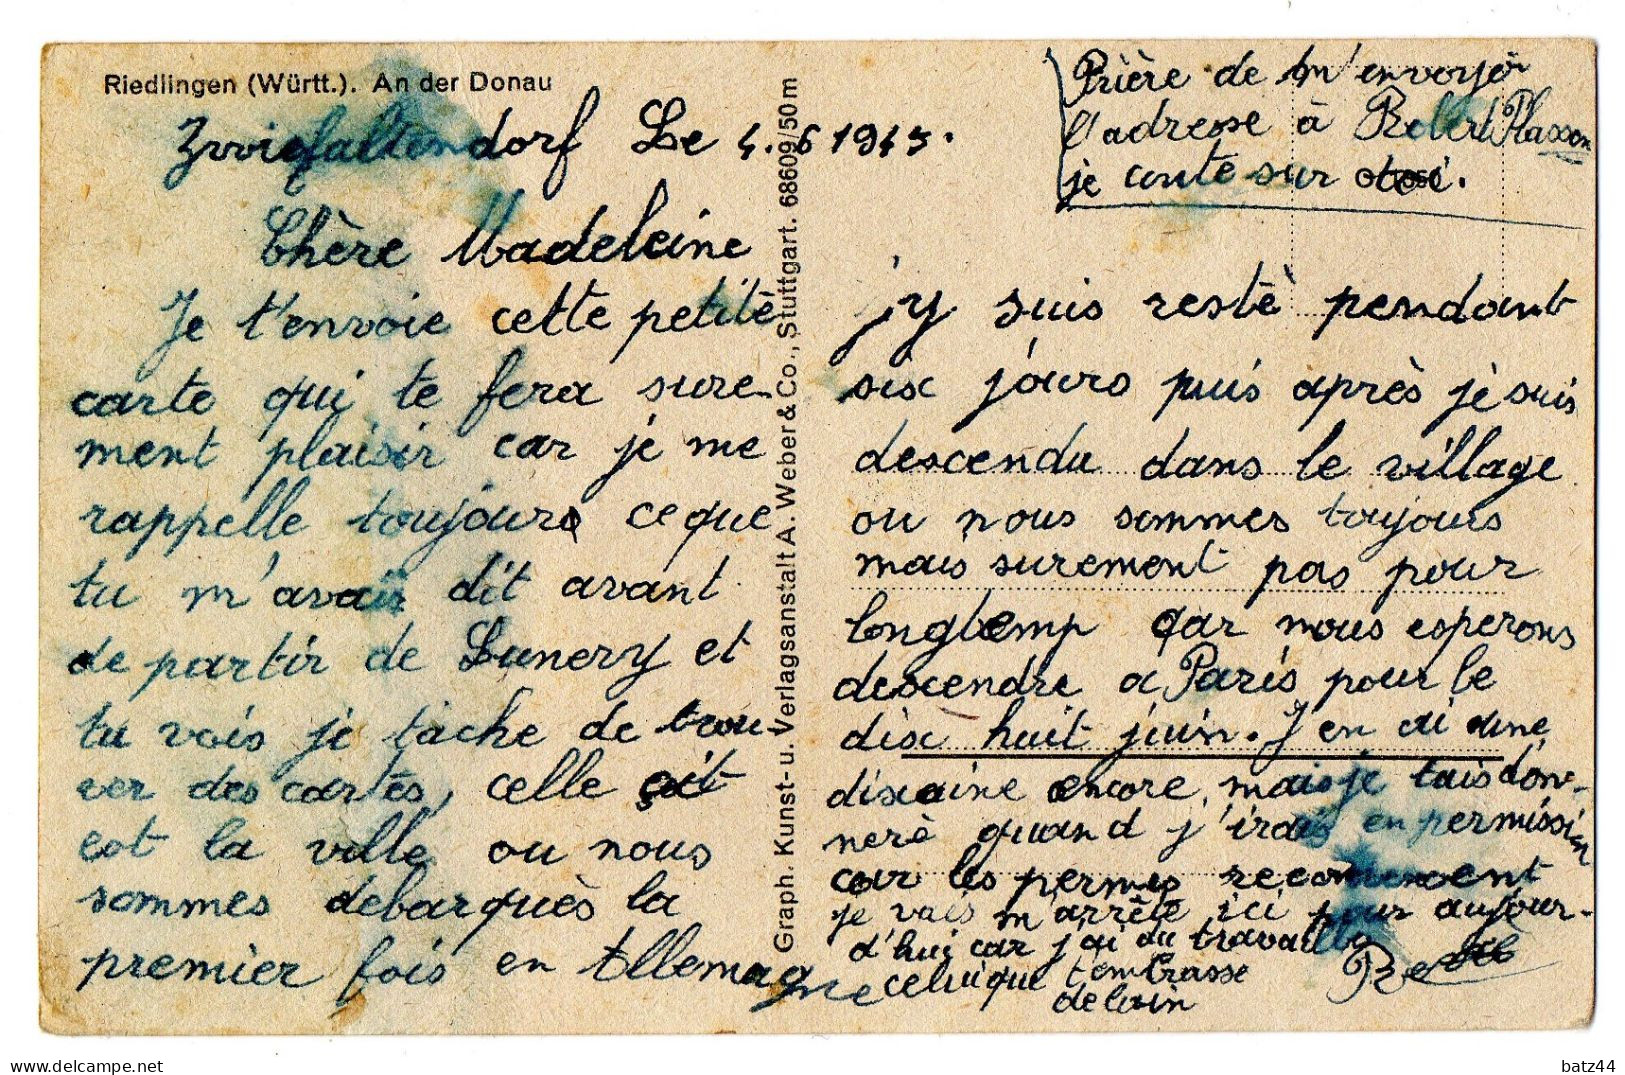 Riedlingen (Württ.). An der Donau
Zwiefaltendorf Le 4.6 1945.
Chère Madeleine
Je t'envoie cette petite
carte qui te fera sure-
ment plaisir car je me
rappelle toujours ce que
tu m'avais dit avant
de partir de Lunery et
tu vois je tache de trou-
ver des cartes, celle çit
est la ville ou nous
sommes debarqués la
premier fois en Allemagne
Graph. Kunst- u. Verlagsanstalt A. Weber & Co., Stuttgart. 68609/50 m
Prière de m'envoyér
l'adresse à Robert Plasson
je conte sur toi.
j'y suis resté pendant
six jours puis après je suis
descendu dans le village
ou nous sommes toujours
mais surement pas pour
longtemp car nous esperons
descendre a Paris pour le
dix huit juin. J'en ai une
dixaine encore, mais je t'ais don-
neré quand j'irais en permission
car les permes recommencent
je vais m'arrête ici pour aujour-
d'hui car j'ai du travaille
celui que t'embrasse
de loin